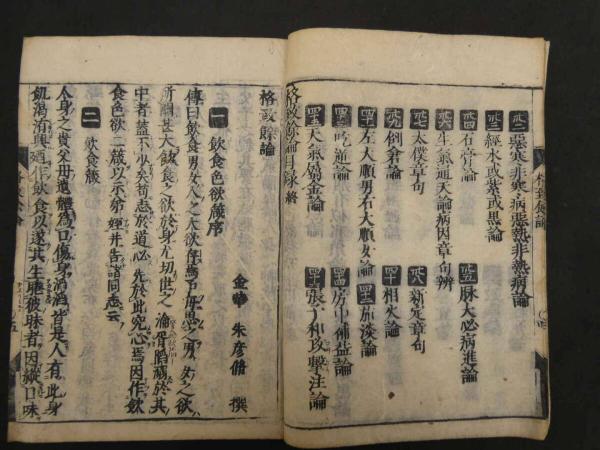 惡寒非寒病惡熱非熱病論
經水或紫或黒論
石膏論
脉大必病進論
生氣通天論病因章句辨
太僕章句
新定章句
倒倉論
相火論
左大順男右大順女論
茹淡論
吃逆論
房中補益論
天氣屬金論
張子和攻擊注論
格致餘論目録終
格致餘論
金華 朱彦脩 撰
一 飲食色欲箴序
傳曰飲食男女人之大欲存焉予毎思之男女之欲
所關甚大飲食之欲於身尤切世之淪胥陷溺於其
中者蓋不少矣苟志於道必先於此究心焉因作飲
食色欲二箴以示弟姪并告諸同志云
二 飲食箴
人身之貴父母遺體爲口傷身滔滔皆是人有此身
飢渴洊興迺作飲食以遂其生睠彼昧者因縱口味